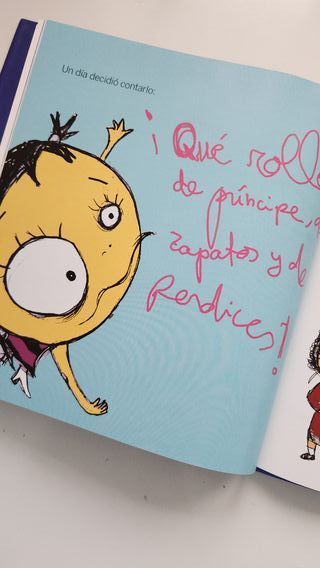 Un día decidió contarlo:
¡Qué rollo
de príncipe,
zapatos y de
Perdices!